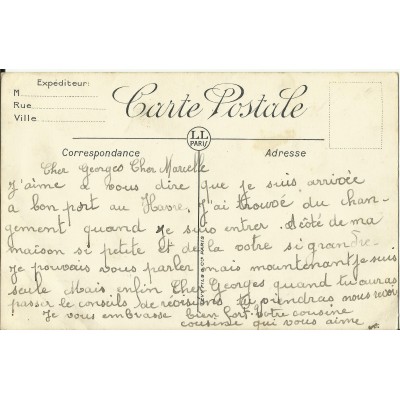 Expéditeur:
M
Rue
Ville
Carte Postale
LL
PARIS
Correspondance
Adresse
Cher Georges Cher Marcelle
J'aime a vous dire que je suis arrivée
à bon port au Havre, J'ai trouvé du chan-
gement quand je suis entrer. A côté de ma
maison si petite et de la votre si grande
je pouvais vous parler mais maintenant je suis
seule Mais enfin Cher Georges quand tu auras
passer le conseils de révisions tu prendras nous revoir
Je vous embrasse bien fort votre cousine
cousine qui vous aime